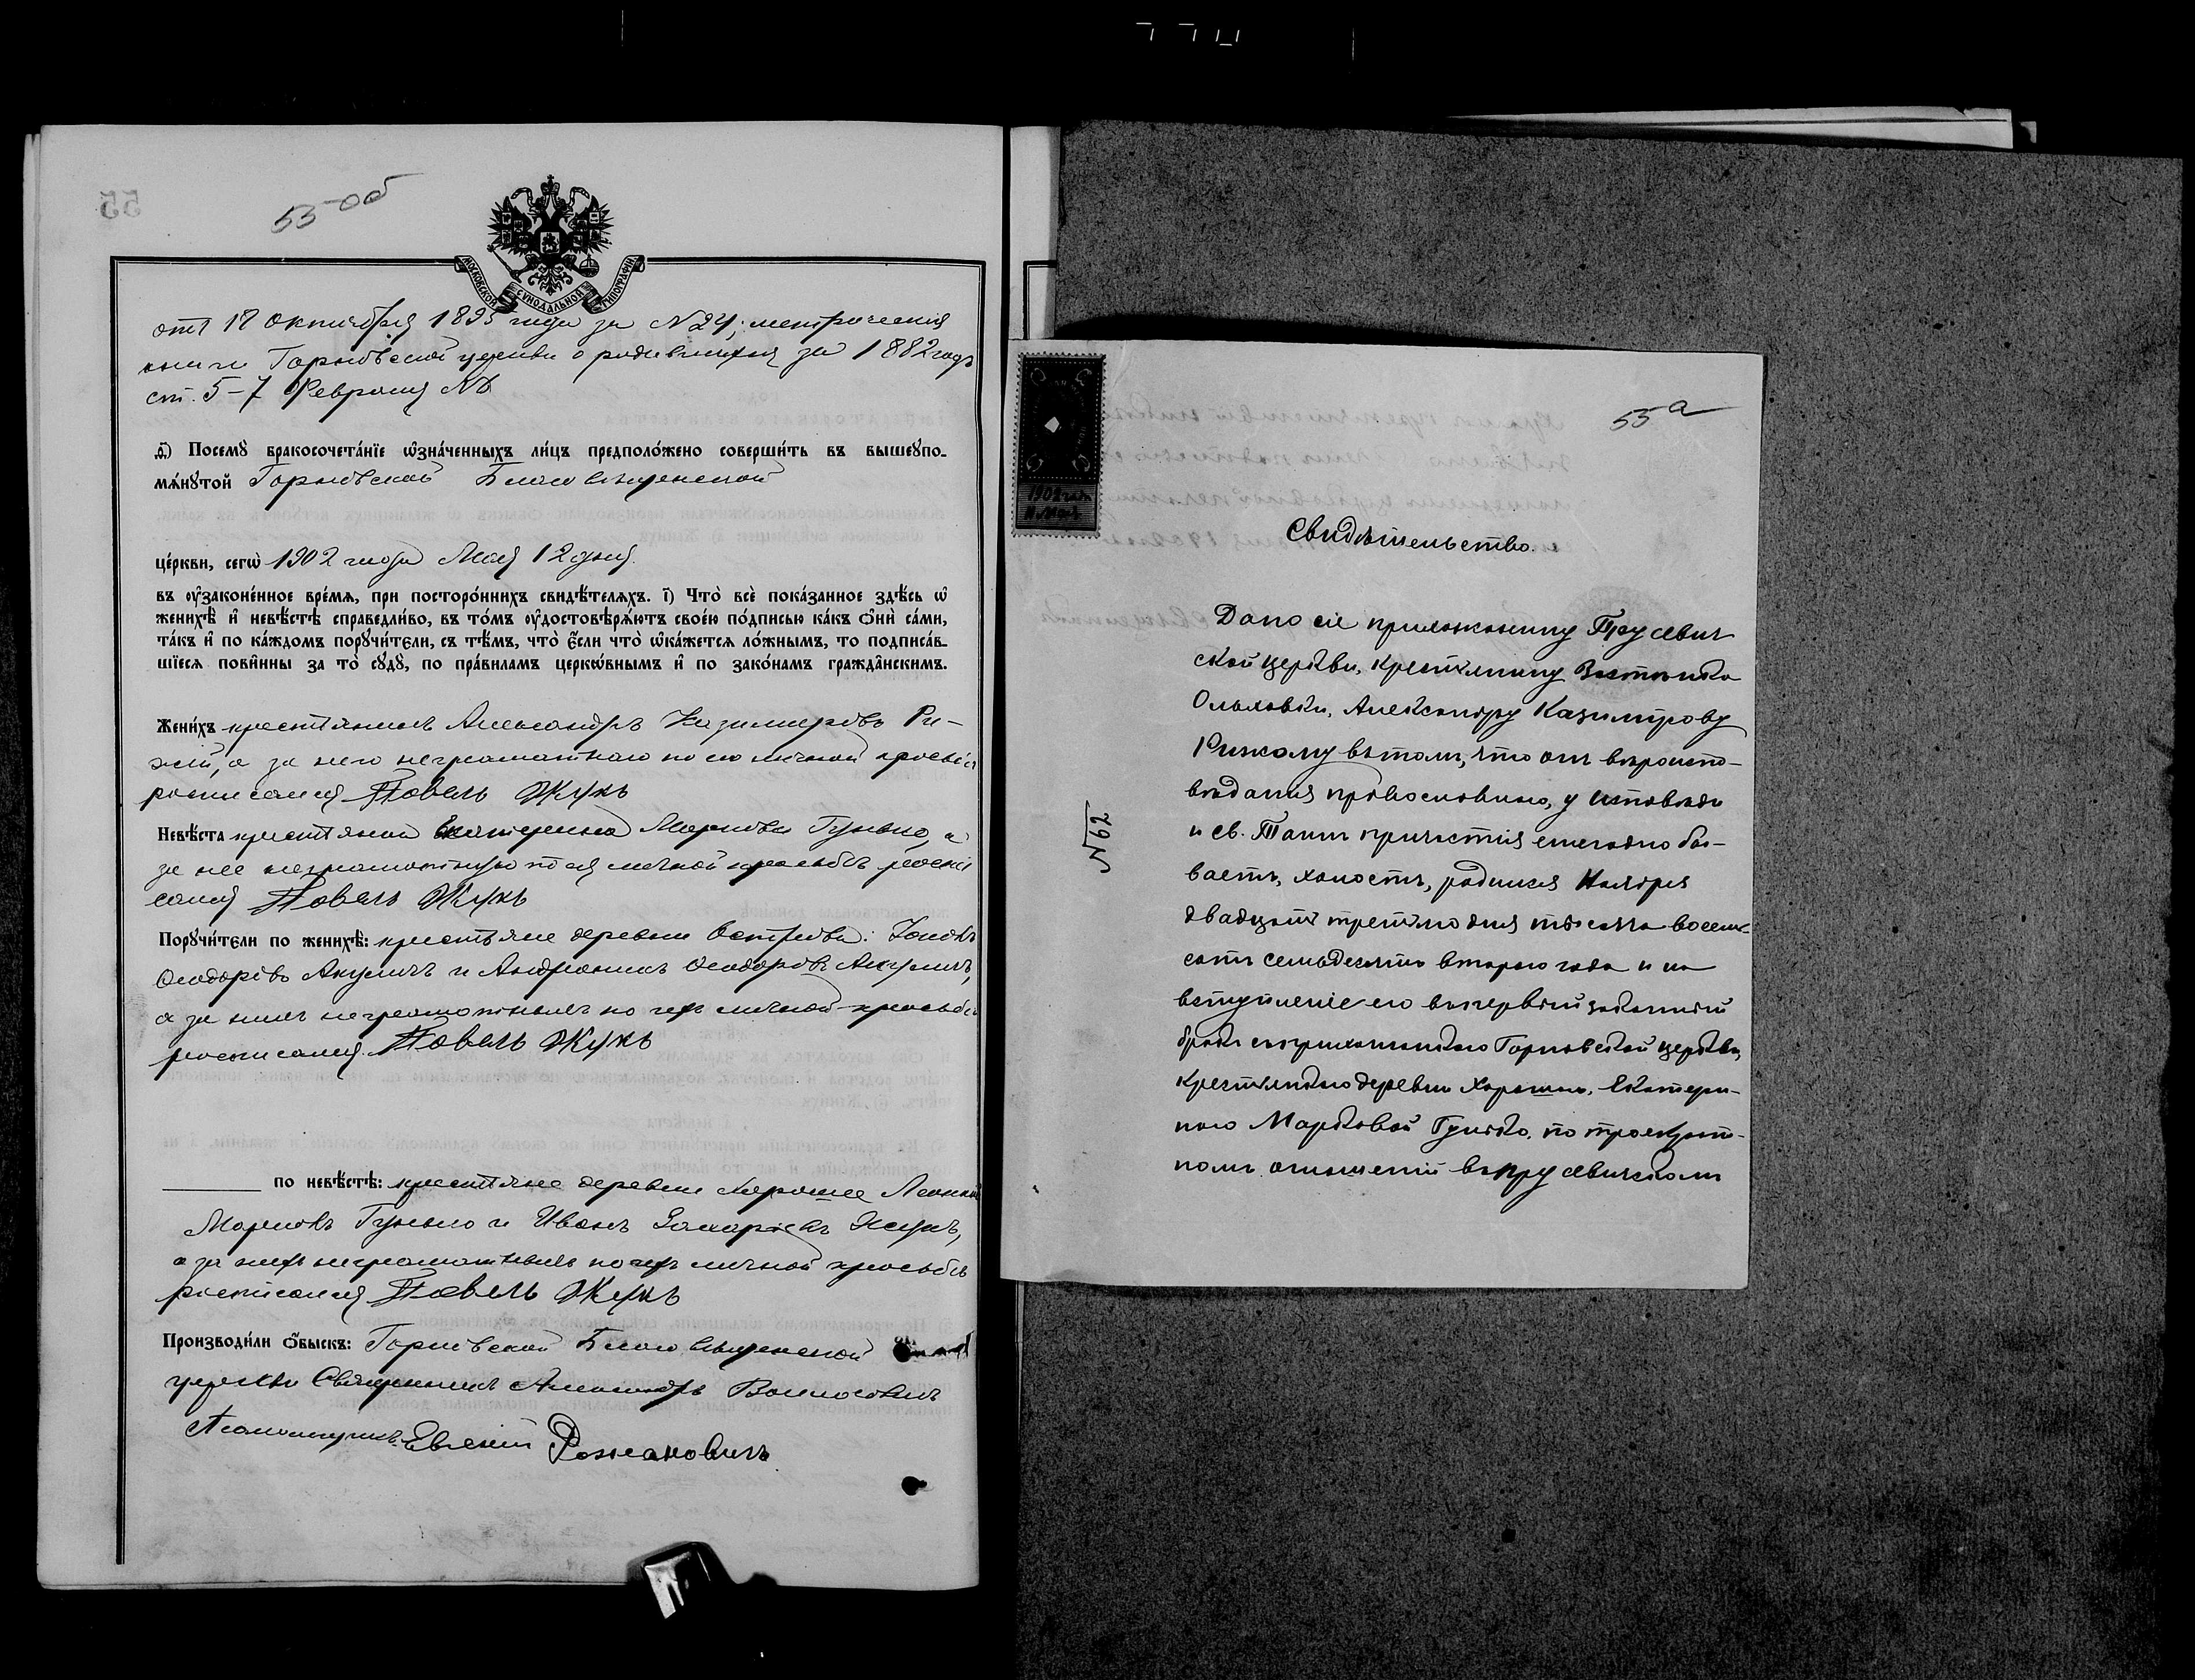 55 об
МОСКОВСКОЙ СУНОДАЛЬНОЙ ТИПОГРАФІИ
отъ 18 Октября 1895 года за №24; метрическія
книги Горновской церкви о родившихся за 1882 годъ
ст. 5-7 Февраля №
Посемꙋ̀ бракосочета́нїе ѡ҆зна́ченныхъ ли́цъ предположено соверши́ть въ вышеꙋпо-
мѧ́нꙋтой Горновской Благовѣщенской
це́ркви, сегѡ̀ 1902 года Мая 12 дня
въ ᲂу҆законе́нное вре́мѧ, при посторо́ннихъ свидѣ́телѧхъ. і҃) Что̀ всѐ пока́занное здѣ́сь ѡ҆
женихѣ̀ и҆ невѣ́стѣ справедли́во, въ то́мъ ᲂу҆достовѣрѧ́ютъ свое́ю по́дписью ка́къ ѻ҆нѝ са́ми,
та́къ и҆ по ка́ждомъ порꙋчи́тели, съ тѣ́мъ, что̀ є҆́сли что̀ ѡ҆ка́жетсѧ ло́жнымъ, то подписа́в-
шїесѧ пови́нны за то̀ сꙋдꙋ̀, по пра́виламъ церко́внымъ и҆ по зако́намъ гражда́нскимъ.
Жени́хъ крестьянинъ Александръ Казимировъ Ри-
жій, а за него неграмотнаго по его личной просьбѣ
росписался Павелъ Жукъ
Невѣ́ста крестьянка Екатерина Маркова Гунько, а
за нее неграмотную по ея личной просьбѣ роспи
сался Павелъ Жукъ
Порꙋчи́тели по женихѣ̀: крестьяне деревни Острова:
Ѳеодоровъ Акуличъ и Андроникъ Ѳеодоровъ Акуличъ,
а за нихъ неграмотныхъ по ихъ личной просьбѣ
росписался Павелъ Жукъ
по невѣ́стѣ: крестьяне деревни Хорошее
Марковъ Гунько и Иванъ Захаріевъ Жукъ,
а за нихъ неграмотныхъ по ихъ личной просьбѣ
росписался Павелъ Жукъ
Производи́ли ѻ҆́быскъ: Горновской Благовѣщенской
церкви Священникъ Александръ
Псаломщикъ Евгеній Рожановичъ
55 а
1902 года
11 Мая
№ 62
Свидѣтельство.
Дано сіе прихожанину Прусевич
ской церкви, крестянину
Ольховки, Александру Казимірову
Рижому въ томъ, что онъ вѣроиспо-
вѣданія православнаго, у исповѣди
и св. Таинъ причастія ежегодно бы-
ваетъ, холостъ, родился Ноября
двадцать третьяго дня тысяча восемь
сотъ семьдесятъ второго года и на
вступленіе его въ первый законный
бракъ съ прихожанкою Горновской церкви,
крестьянкою деревни Хорошаго, Екатери-
ною Марковой Гунько, по троекрат-
номъ оглашеніи въ Прусевичскомъ